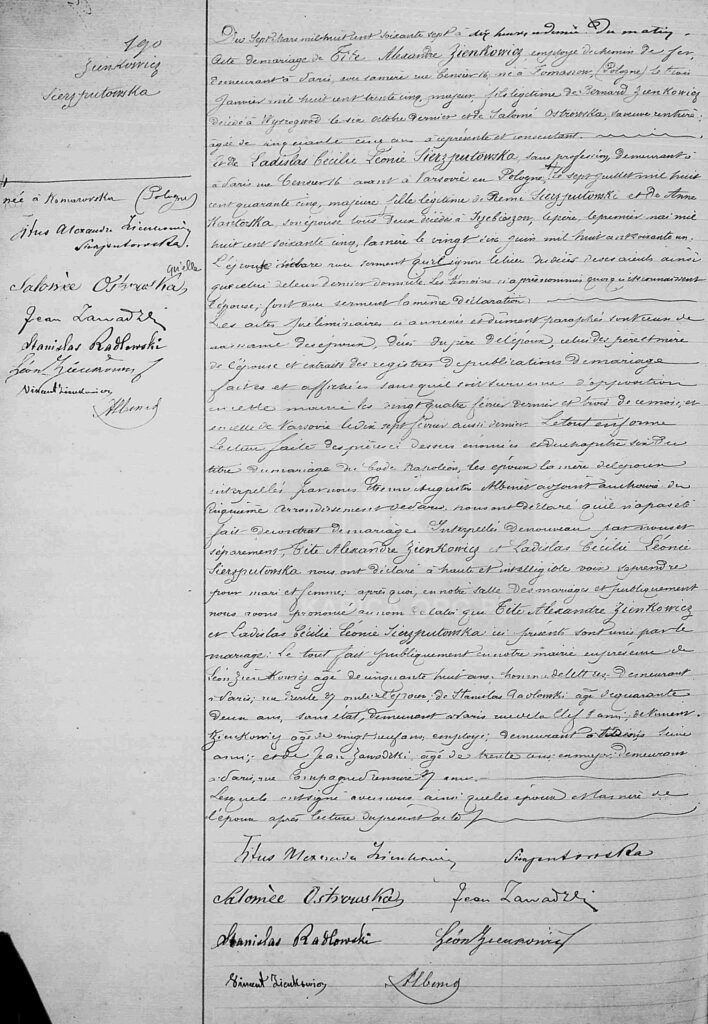 190
Zienkowicz
Sierzputowska
née à Komarowska (Pologne)
Titus Alexandre Zienkowicz
Sierputowska.
qu'elle
Salomée Ostrowska
Jean Zawadzki
Stanislas Radlowski
Léon Zienkowicz
Vincent Zienkowicz
Albenis
Du Sept Mars mil huit cent soixante sept à dix heures et demie du matin.
Acte de mariage de Tite Alexandre Zienkowicz, employé de chemin de fer,
demeurant à Paris, avec sa mère rue Censier 16, né à Tomaszow, (Pologne) le trois
Janvier mil huit cent trente cinq, majeur, fils légitime de Bernard Zienkowicz
décédé à Wyszogrod le six octobre dernier et de Salomé Ostrowska, sa veuve rentière,
agée de cinquante cinq ans ci présente et consentant.
Et de Ladislas Cécilie Léonie Sierzputowska, sans profession, demeurant à
à Paris rue Censier 16 avant à Varsovie en Pologne, le sept Juillet mil huit
cent quarante cinq, majeure, fille légitime de Remi Sierzputowski et de Anne
son épouse tous deux décédés à le père, le premier mai mil
huit cent soixante cinq, la mère le vingt Juin mil huit cent soixante un.
L'épouse déclare sous serment qu'el ignore le lieu des décès des aieuls ainsi
que celui de leur dernier domicile Les témoins ci après nommés quoiqu'ils connaissent
l'épouse, font avec serment la même déclaration.
Les actes préliminaires ci annexés et dûment paraphés sont ceux de
naissance des époux, décès du père de l'époux, celui des père et mère
de l'épouse et extraits des registres de publications de mariage
faites et affichées sans qu'il soit survenu d'opposition
en cette mairie les vingt quatre février dernier et trois de ce mois, et
en celle de Varsovie le dix sept février aussi dernier. Le tout en forme
Lecture faite des pièces ci dessus énoncées et du chapitre six du
titre du mariage du Code Napoléon, les époux la mère de l'époux
interpellés par nous Auguste adjoint au maire du
cinquième arrondissement de Paris, nous ont déclaré qu'il n'a pas été
fait de contrat de mariage. Interpellés de nouveau par nous et
séparement, Tite Alexandre Zienkowicz et Ladislas Cécilie Léonie
Sierzputowska nous ont déclaré à haute et intelligible voix se prendre
pour mari et femme; après quoi, en notre salle des mariages et publiquement
nous avons prononcé au nom de la loi que Tite Alexandre Zienkowicz
et Ladislas Cécilie Léonie Sierzputowska ici présents sont unis par le
mariage. Le tout fait publiquement en notre mairie en présence de
Léon Zienkowicz agé de cinquante huit ans, homme de lettres, demeurant
à Paris, rue 37 oncle de l'époux; de Stanislas Radlowski agé de quarante
deux ans, sans état, demeurant à Paris rue de la Clef 8 ami; de Vincent
Zienkowicz agé de vingt neuf ans, employé; demeurant à Seine
ami; et de Jean Zawadzki, agé de trente ans employé demeurant
à Paris, rue Campagne Première 7 ami.
Lesquels ont signé avec nous ainsi que les époux et la mère de
l'époux après lecture du présent acte
Titus Alexandre Zienkowicz Sierputowska
Salomée Ostrowska Jean Zawadzki
Stanislas Radlowski Léon Zienkowicz
Vincent Zienkowicz Albenis